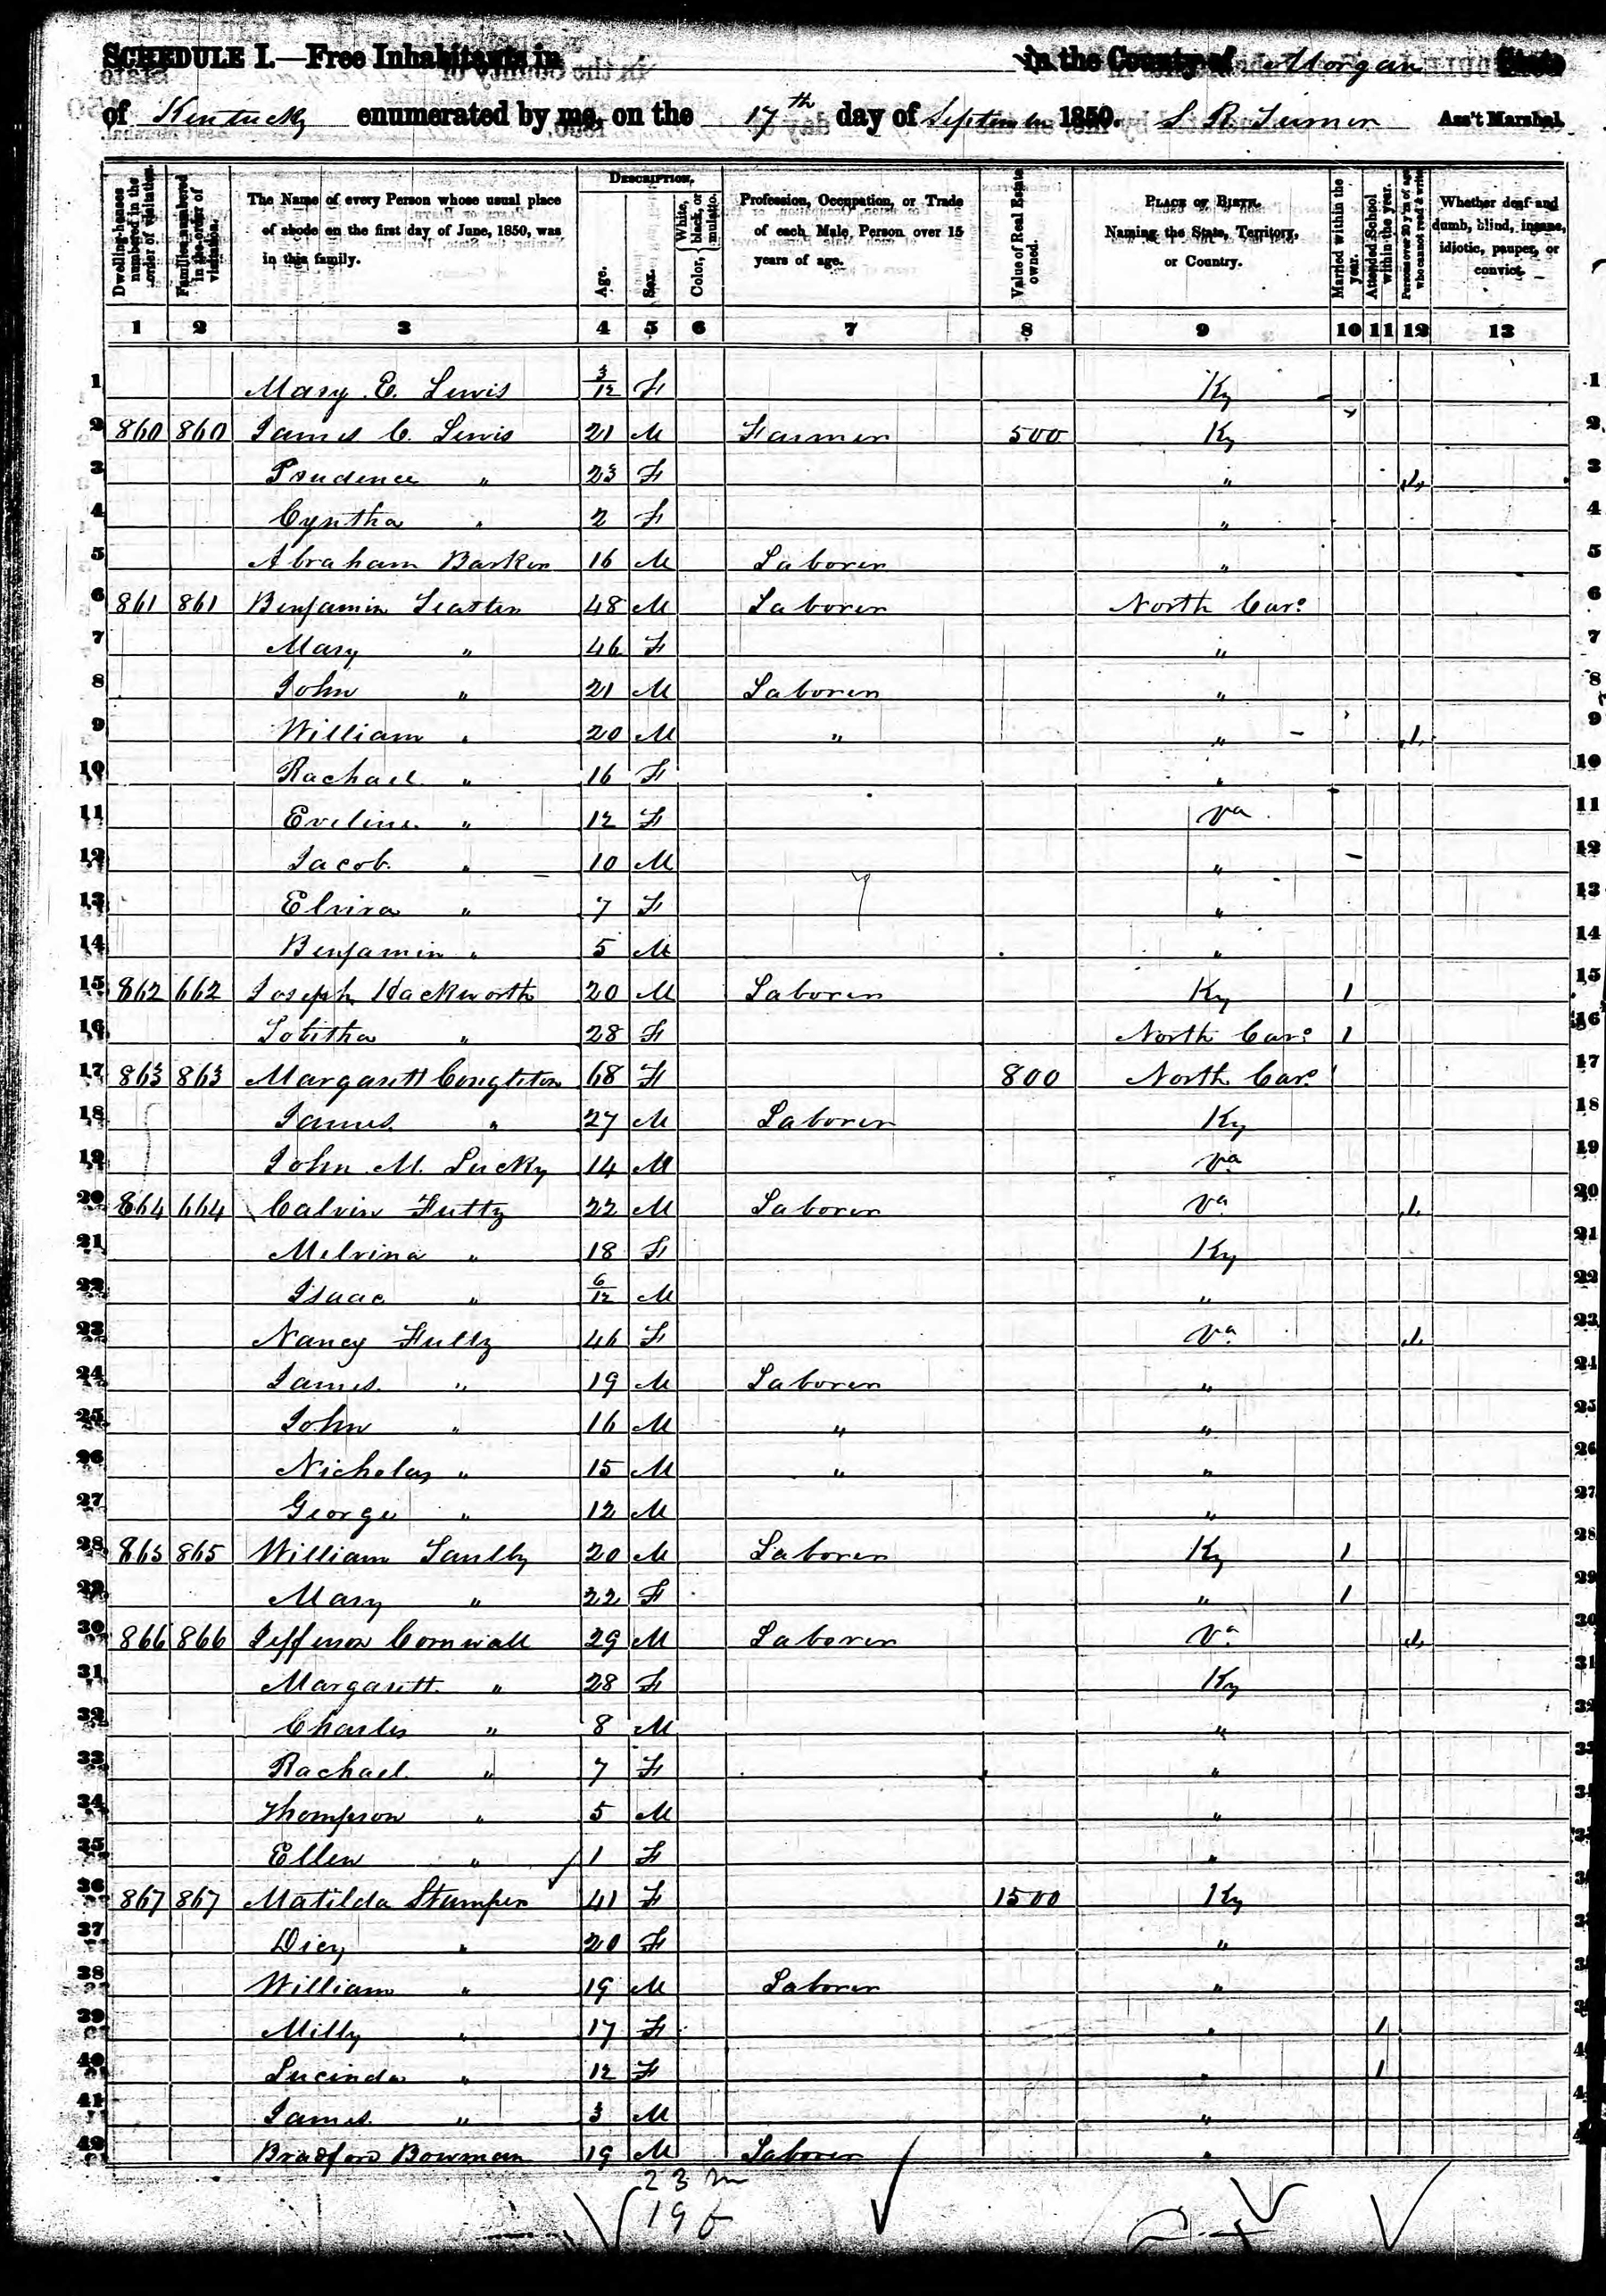 SCHEDULE I.—Free Inhabitants in in the County of Morgan State
of Kentucky enumerated by me, on the 17th day of September 1850. S R Turner Ass't Marshal.
Dwelling-houses numbered in the order of visitation.
Families numbered in the order of visitation.
The Name of every Person whose usual place of abode on the first day of June, 1850, was in this family.
DESCRIPTION.
Age.
Sex.
Color, White, black, or mulatto.
Profession, Occupation, or Trade of each Male Person over 15 years of age.
Value of Real Estate owned.
PLACE OF BIRTH. Naming the State, Territory, or Country.
Married within the year.
Attended School within the year.
Persons over 20 y'rs of age who cannot read & write
Whether deaf and dumb, blind, insane, idiotic, pauper, or convict.
1 2 3 4 5 6 7 8 9 10 11 12 13
1 Mary E. Lewis 3/12 F Ky 1
2 860 860 James C. Lewis 21 M Farmer 500 Ky 2
3 Prudence " 23 F " 1 3
4 Cyntha " 2 F " 4
5 Abraham Barker 16 M Laborer " 5
6 861 861 Benjamin 48 M Laborer North Caro 6
7 Mary " 46 F " 7
8 John " 21 M Laborer " 8
9 William " 20 M " " 1 9
10 Rachael " 16 F " 10
11 Eveline " 12 F Va 11
12 Jacob " 10 M " 12
13 Elvira " 7 F " 13
14 Benjamin " 5 M " 14
15 862 662 Joseph Hackworth 20 M Laborer Ky 1 15
16 Tobitha " 28 F North Caro 1 16
17 863 863 Margarett Congleton 68 F 800 North Caro 17
18 James " 27 M Laborer Ky 18
19 John M. Lucky 14 M Va 19
20 864 664 Calvin Fultz 22 M Laborer Va 1 20
21 Melvina " 18 F Ky 21
22 Isaac " 6/12 M " 22
23 Nancy Fultz 46 F Va 1 23
24 James " 19 M Laborer " 24
25 John " 16 M " " 25
26 Nicholas " 15 M " " 26
27 George " 12 M " 27
28 865 865 William 20 M Laborer Ky 1 28
29 Mary " 22 F " 1 29
30 866 866 Jefferson Cornwall 29 M Laborer Va 1 30
31 Margarett " 28 F Ky 31
32 Charles " 8 M " 32
33 Rachael " 7 F "
34 Thompson " 5 M "
35 Ellen " 1 F "
36 867 867 Matilda Stamper 41 F 1500 Ky
37 Dicy " 20 F "
38 William " 19 M Laborer "
39 Milly " 17 F " 1
40 Lucinda " 12 F " 1
41 James " 3 M "
42 Bradford Bowman 19 M Laborer "
23 m
19 f